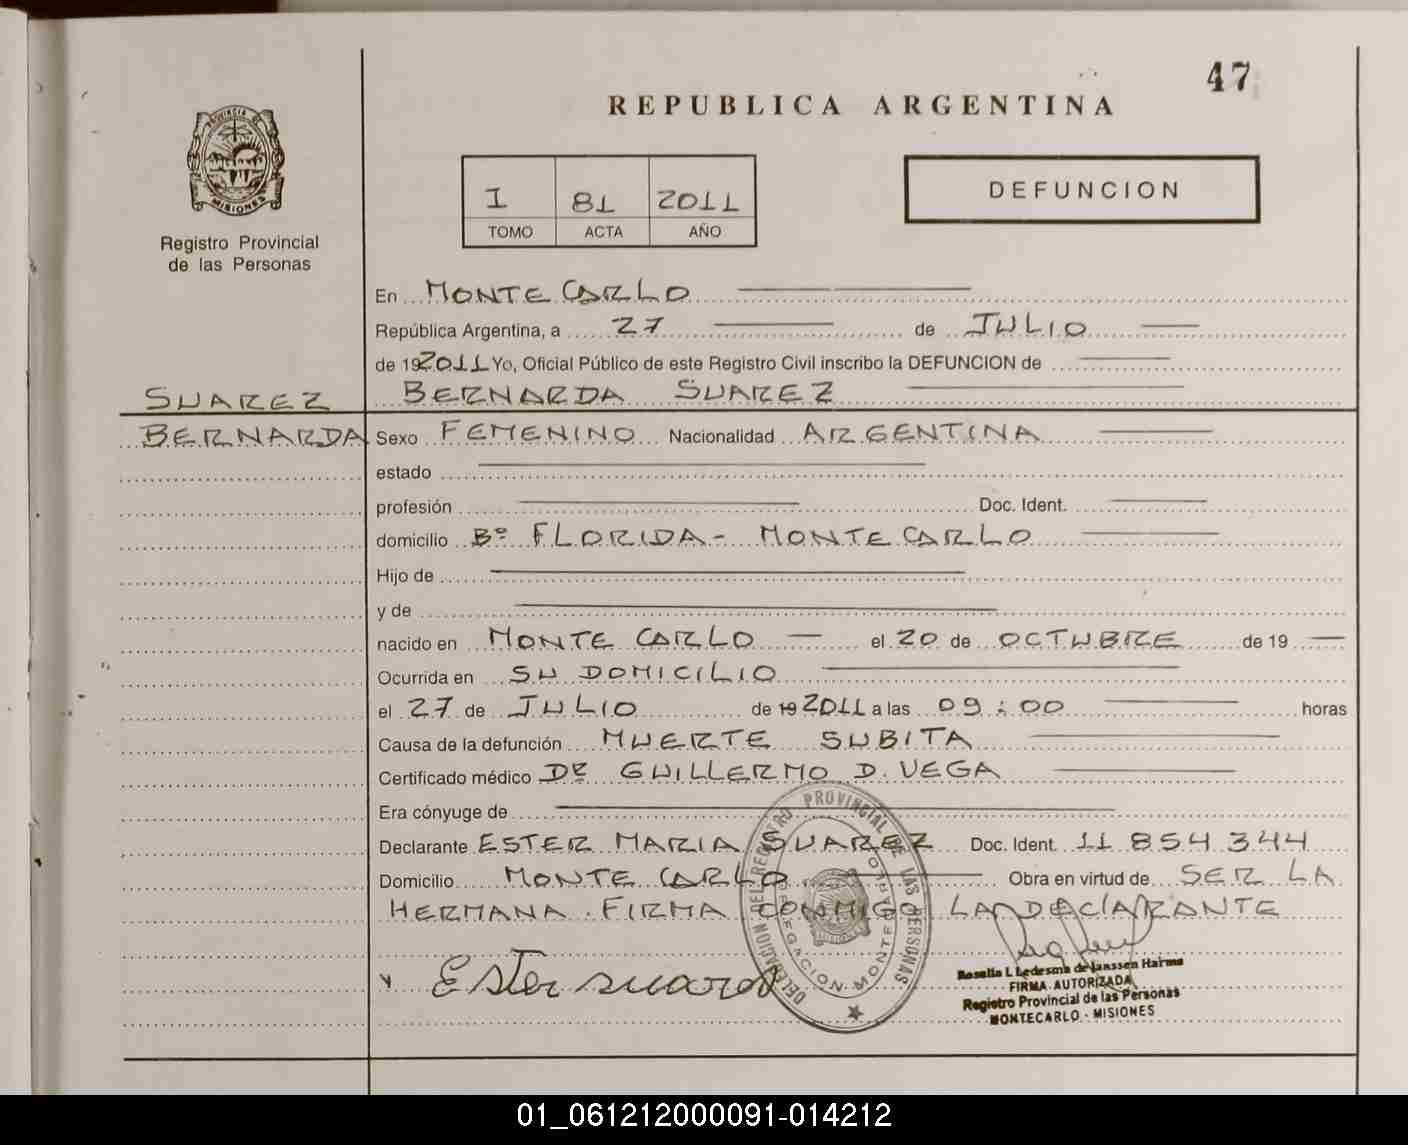 47
REPUBLICA ARGENTINA
PROVINCIA DE
MISIONES
Registro Provincial
de las Personas
I 81 2011
TOMO ACTA AÑO
DEFUNCION
En MONTE CARLO
República Argentina, a 27 de JULIO
de 192011 Yo, Oficial Público de este Registro Civil inscribo la DEFUNCION de
SUAREZ
BERNARDA SUAREZ
BERNARDA
Sexo FEMENINO Nacionalidad ARGENTINA
estado
profesión Doc. Ident.
domicilio Bº FLORIDA - MONTE CARLO
Hijo de
y de
nacido en MONTE CARLO el 20 de OCTUBRE de 19
Ocurrida en SU DOMICILIO
el 27 de JULIO de 19 2011 a las 09:00 horas
Causa de la defunción MUERTE SUBITA
Certificado médico Dr GUILLERMO D. VEGA
Era cónyuge de
Declarante ESTER MARIA SUAREZ Doc. Ident. 11 854 344
Domicilio MONTE CARLO Obra en virtud de SER LA
HERMANA. FIRMA CONMIGO LA DECLARANTE
Ester suarez
DELEGACION DEL REGISTRO PROVINCIAL DE LAS PERSONAS
DELEGACION MONTECARLO
Rosalia L Ledesma de Janssen Harms
FIRMA AUTORIZADA
Registro Provincial de las Personas
MONTECARLO - MISIONES
01_061212000091-014212